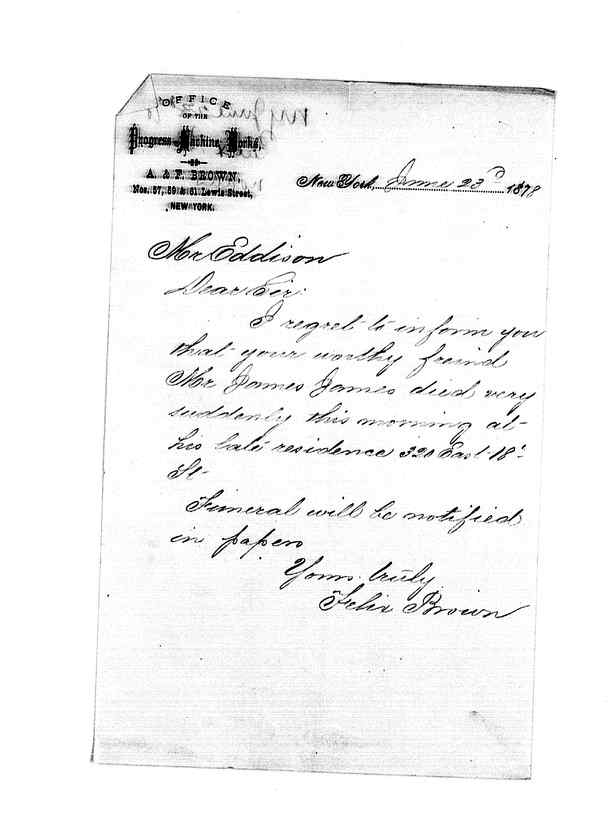 OFFICE
OF THE
Progress Machine Works,
A. & F. BROWN,
Nos. 57, 59 & 61 Lewis Street,
NEW YORK.
New York, June 23d 1878
Mr Eddison
Dear Sir:
I regret to inform you
that your worthy freind
Mr James James died very
suddenly this morning at
his late residence 320 East 18t
St
Funeral will be notified
in papers
Yours truly
Felix Brown